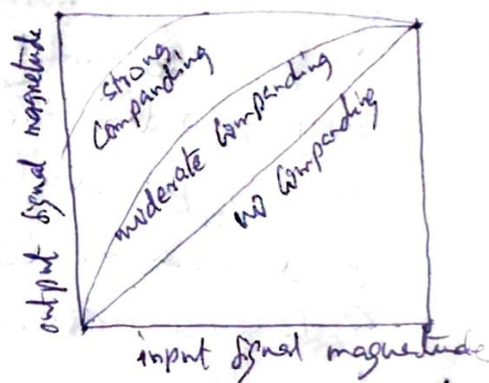 output signal magnetude
strong
Companding
moderate Companding
no Companding
input signal magnetude